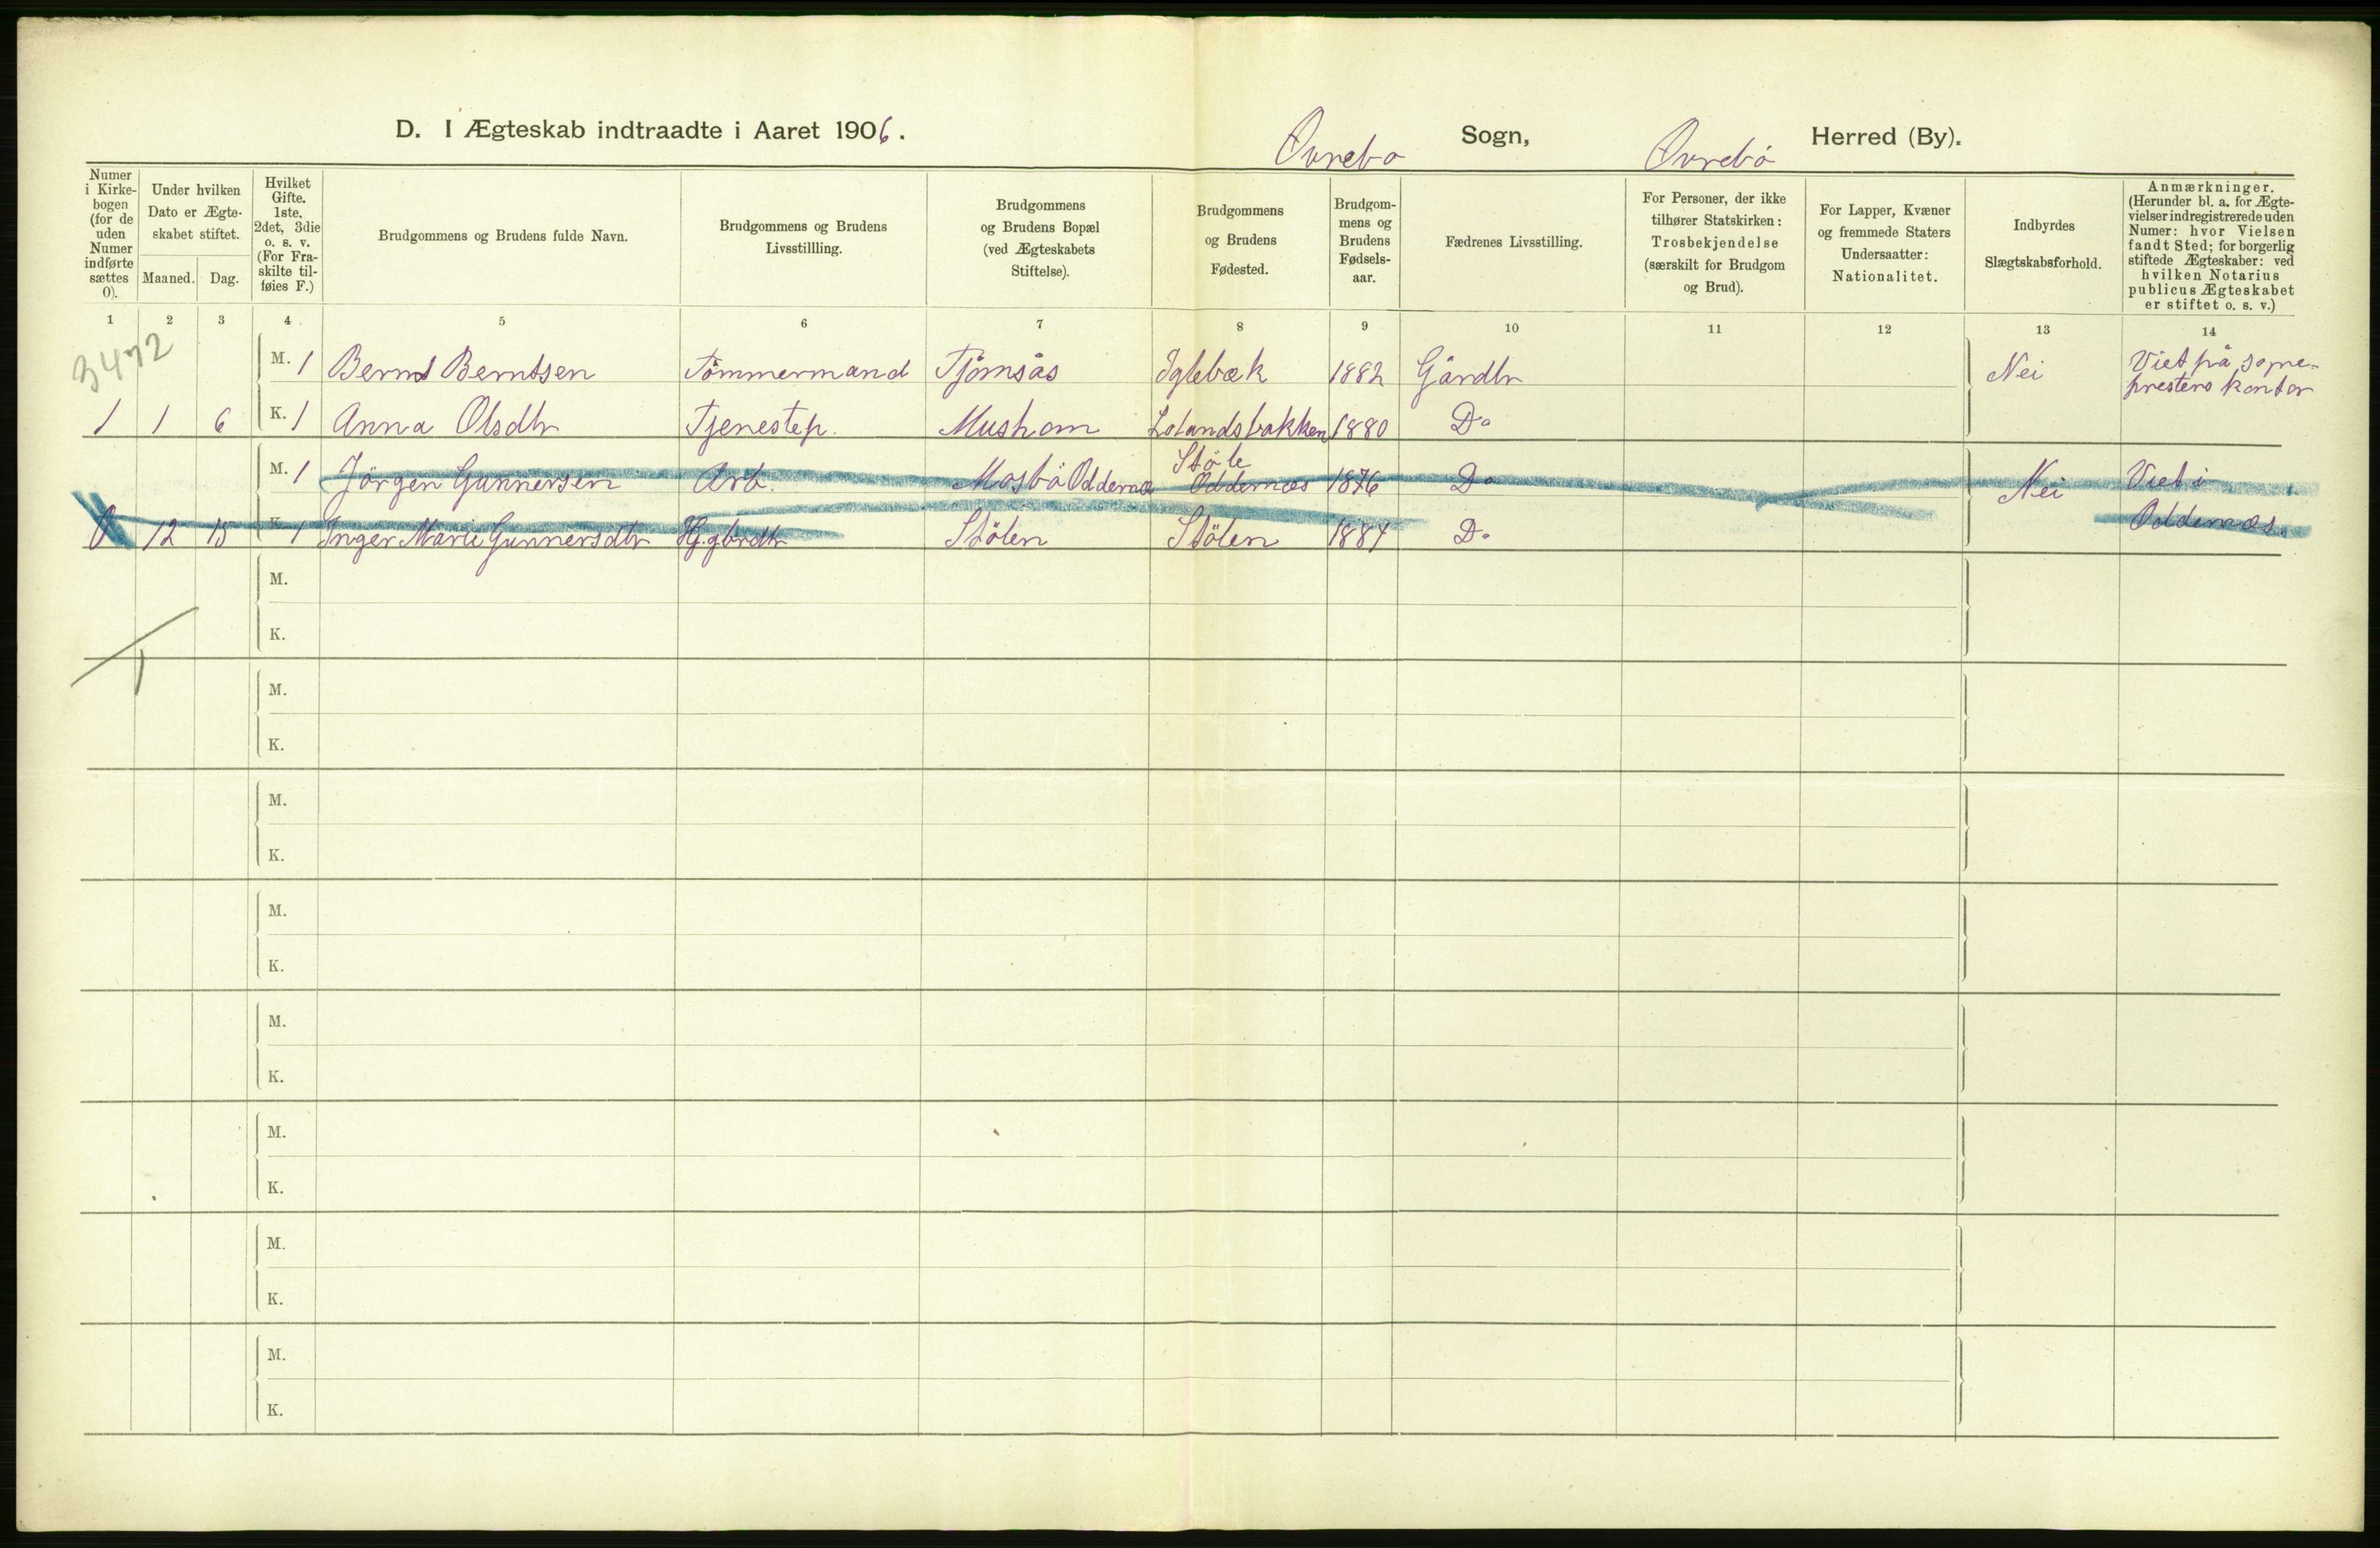 D. I Ægteskab indtraadte i Aaret 1906.
Øvrebø Sogn, Øvrebø Herred (By).
Numer i Kirke-bogen (for de uden Numer indførte sættes 0).
Under hvilken Dato er Ægte-skabet stiftet.
Maaned. Dag.
Hvilket Gifte. 1ste, 2det, 3die o. s. v. (For Fra-skilte til-føies F.)
Brudgommens og Brudens fulde Navn.
Brudgommens og Brudens Livsstillling.
Brudgommens og Brudens Bopæl (ved Ægteskabets Stiftelse).
Brudgommens og Brudens Fødested.
Brudgom-mens og Brudens Fødsels-aar.
Fædrenes Livsstilling.
For Personer, der ikke tilhører Statskirken: Trosbekjendelse (særskilt for Brudgom og Brud).
For Lapper, Kvæner og fremmede Staters Undersaatter: Nationalitet.
Indbyrdes Slægtskabsforhold.
Anmærkninger. (Herunder bl. a. for Ægte-vielser indregistrerede uden Numer: hvor Vielsen fandt Sted; for borgerlig stiftede Ægteskaber: ved hvilken Notarius publicus Ægteskabet er stiftet o. s. v.)
1 2 3 4 5 6 7 8 9 10 11 12 13 14
3472
M. 1 Bernt Berntsen Tömmermand Tjomsås Iglebæk 1882 Gårdbr Nei Viet på sogne-
prestens kontor
1 1 6 K. 1 Anna Olsdtr Tjenestep. Mushom Lolandsbakken 1880 Do
Støle
M. 1 Jörgen Gunnersen Arb. Mosbö Oddernæs Oddernæs 1876 Do Nei Viet i
0 12 15 K. 1 Inger Marie Gunnersdtr Stölen Stölen 1884 Do Oddernæs.
M.
K.
M.
K.
M.
K.
M.
K.
M.
K.
M.
K.
M.
K.
M.
K.
1